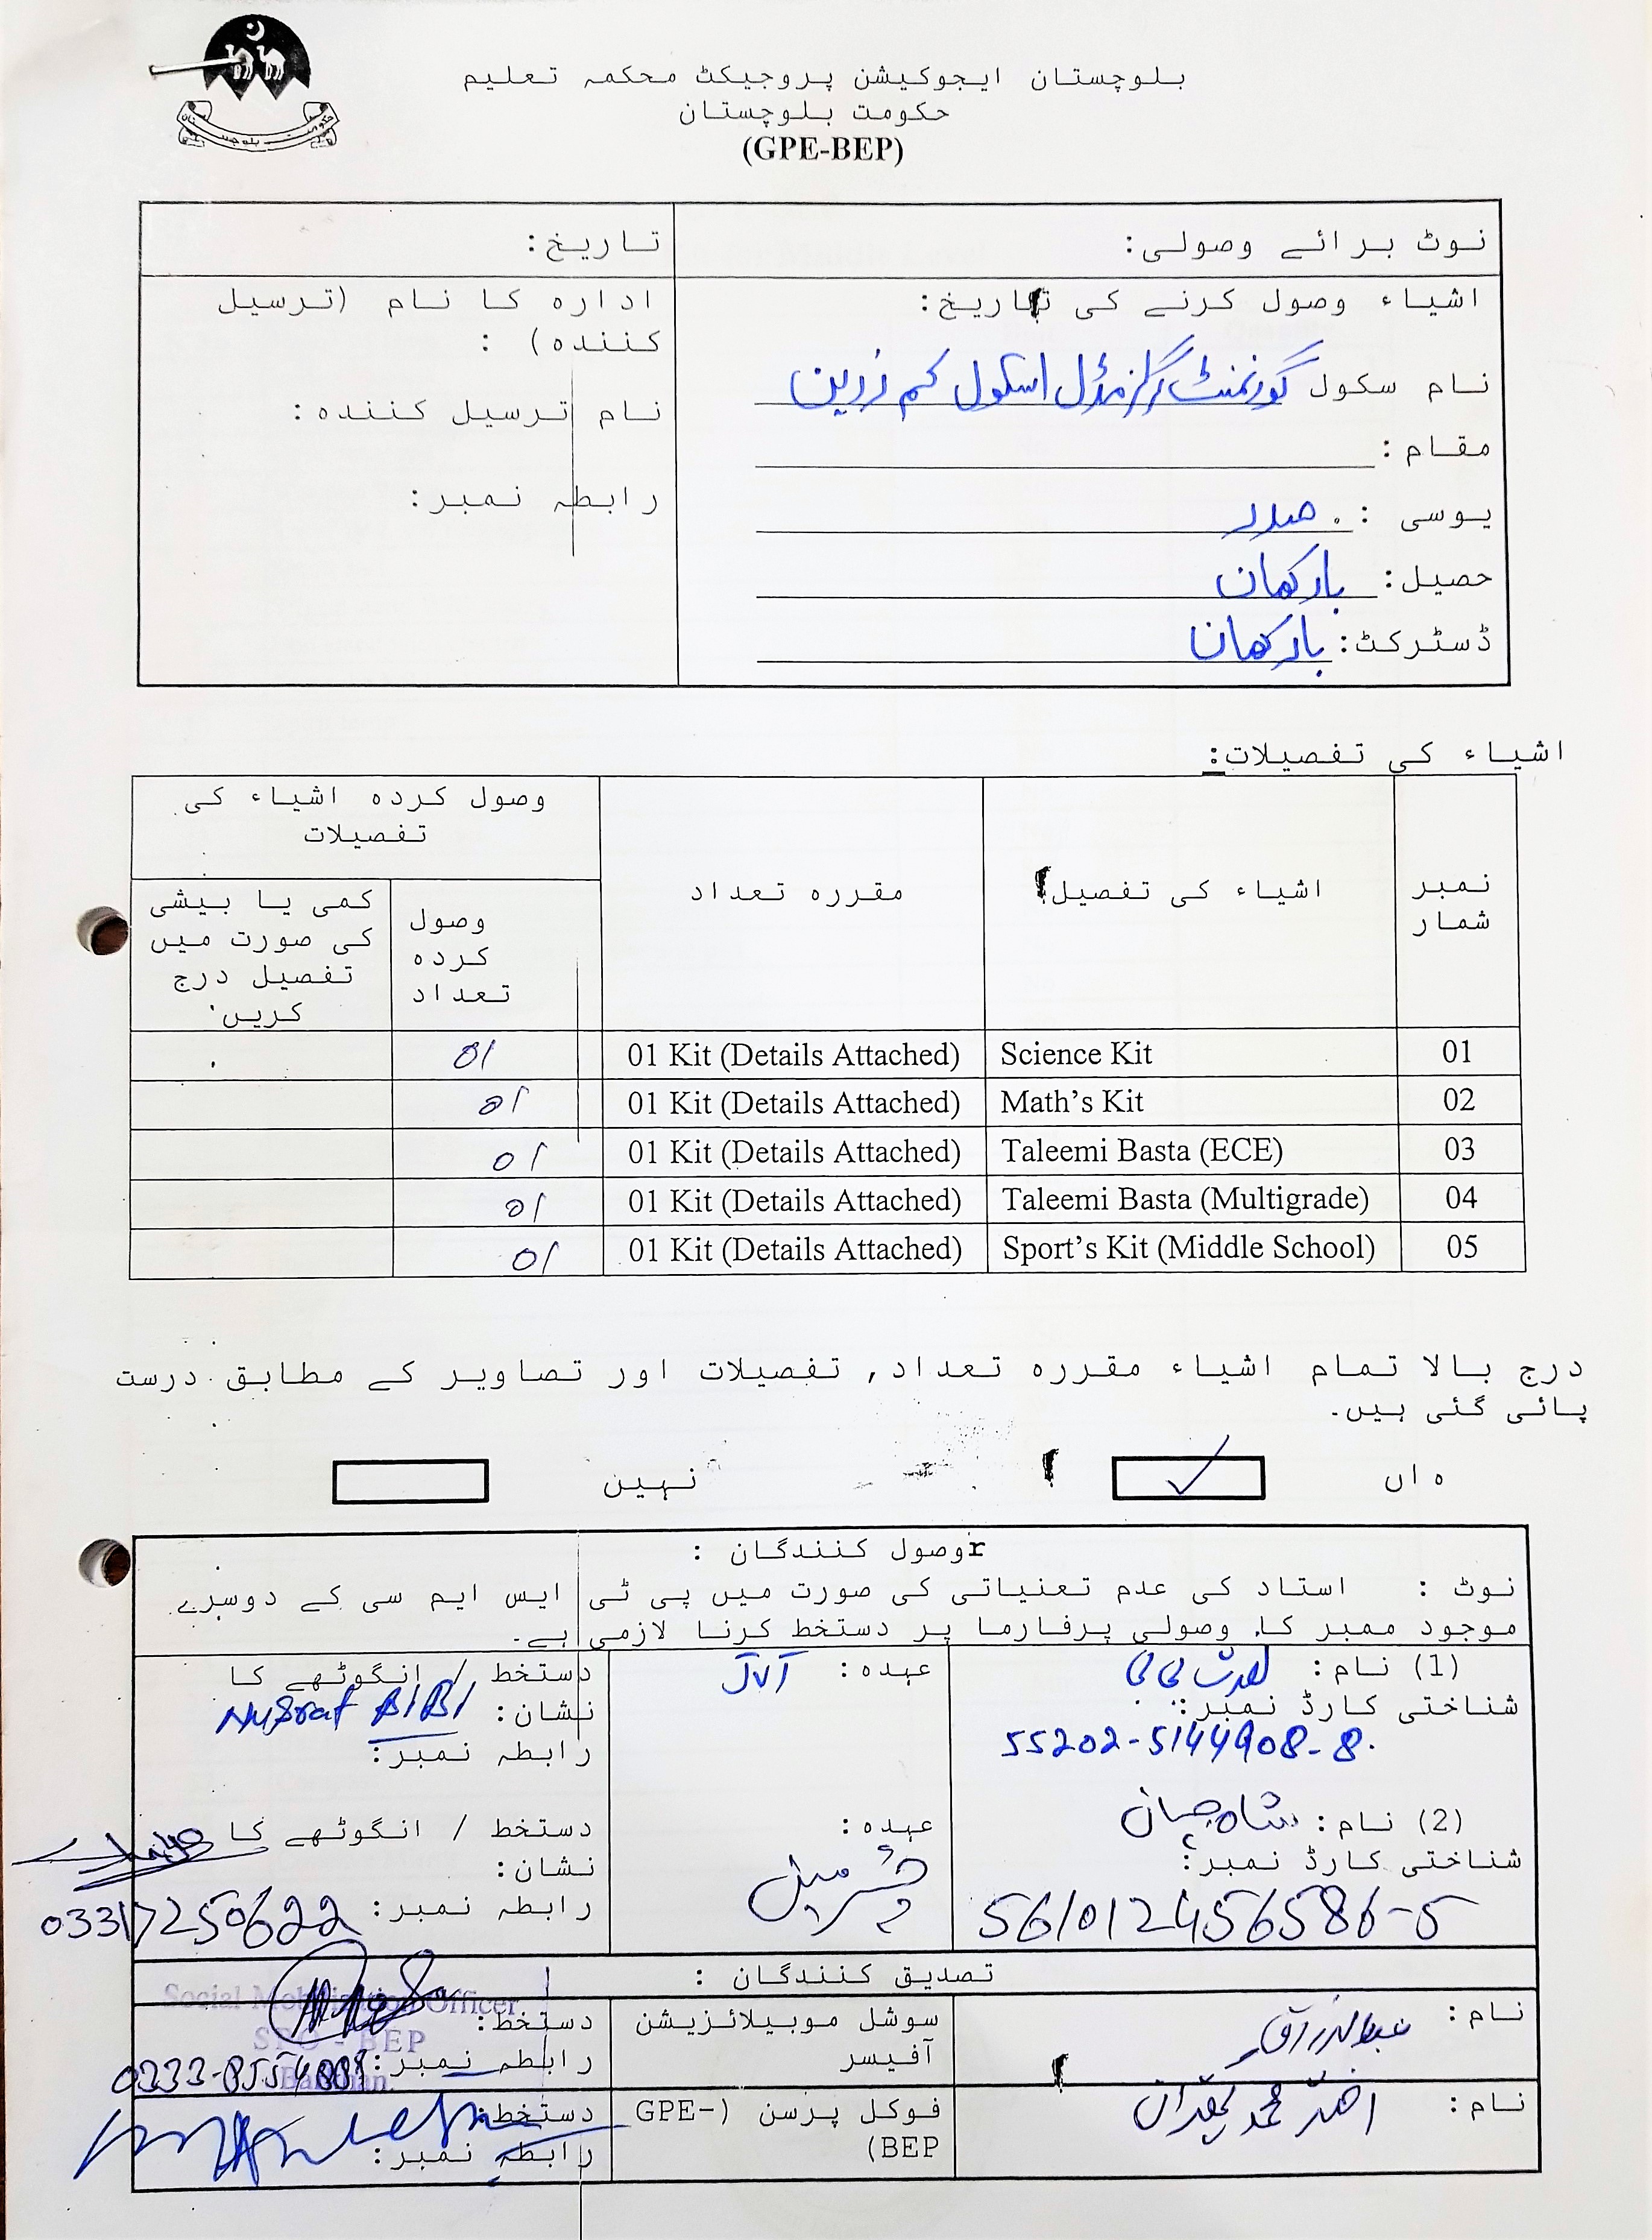 حکومت بلوچستان
بلوچستان ایجوکیشن پروجیکٹ محکمہ تعلیم
حکومت بلوچستان
(GPE-BEP)
نوٹ برائے وصولی:
تاریخ:
اشیاء وصول کرنے کی تاریخ:
نام سکول گورنمنٹ گرلز مڈل اسکول کم زرین
مقام:
یوسی : صدر
حصیل: بارکھان
ڈسٹرکٹ: بارکھان
ادارہ کا نام (ترسیل
کنندہ) :
نام ترسیل کنندہ:
رابطہ نمبر:
اشیاء کی تفصیلات:
نمبر شمار
اشیاء کی تفصیل
مقررہ تعداد
وصول کردہ اشیاء کی
تفصیلات
وصول
کردہ
تعداد
کمی یا بیشی
کی صورت میں
تفصیل درج
کریں
01 Science Kit 01 Kit (Details Attached) 01
02 Math's Kit 01 Kit (Details Attached) 01
03 Taleemi Basta (ECE) 01 Kit (Details Attached) 01
04 Taleemi Basta (Multigrade) 01 Kit (Details Attached) 01
05 Sport's Kit (Middle School) 01 Kit (Details Attached) 01
درج بالا تمام اشیاء مقررہ تعداد, تفصیلات اور تصاویر کے مطابق درست
پائی گئی ہیں۔
ہاں ✓ نہین
rوصول کنندگان :
نوٹ : استاد کی عدم تعنیاتی کی صورت میں پی ٹی ایس ایم سی کے دوسرے
موجود ممبر کا وصولی پرفارما پر دستخط کرنا لازمی ہے۔
(1) نام: نصرت بی بی
شناختی کارڈ نمبر:
55202-5144908-8
عہدہ: JVT
دستخط / انگوٹھے کا
نشان: Nusrat BiBi
رابطہ نمبر:
(2) نام: شاہ جہان
شناختی کارڈ نمبر:
561012456586-5
عہدہ:
چئرمین
دستخط / انگوٹھے کا
نشان:
رابطہ نمبر: 03317250622
تصدیق کنندگان :
نام: عبدالرزاق
سوشل موبیلائزیشن
آفیسر
دستخط:
رابطہ نمبر:
Social Mobilization Officer
BEP
نام: محمد
فوکل پرسن (GPE-
BEP)
دستخط:
رابطہ نمبر: